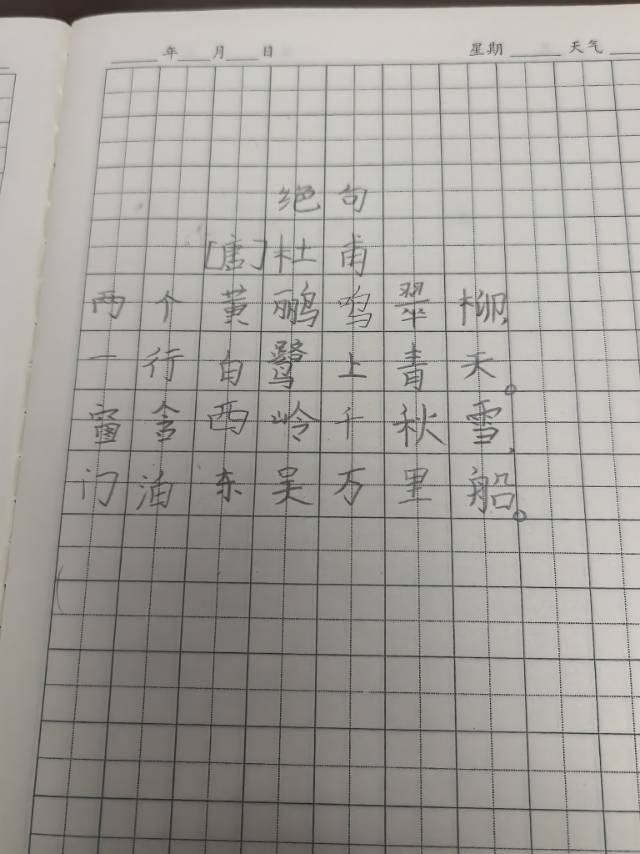 年 月 日 星期 天气
绝句
[唐]杜甫
两个黄鹂鸣翠柳,
一行自鹭上青天。
窗含西岭千秋雪,
门泊东吴万里船。